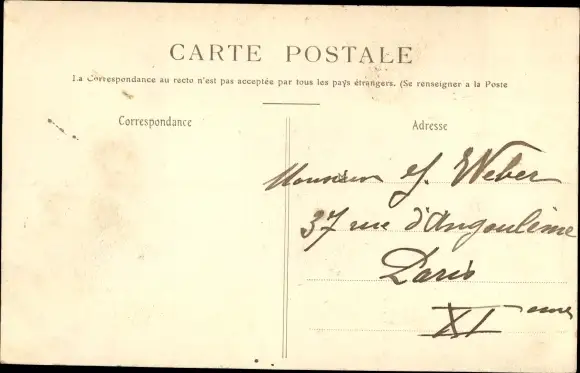 CARTE POSTALE
La Correspondance au recto n'est pas acceptée par tous les pays étrangers. (Se renseigner a la Poste
Correspondance
Adresse
Monsieur J. Weber
37 rue d'Angoulême
Paris
XIeme